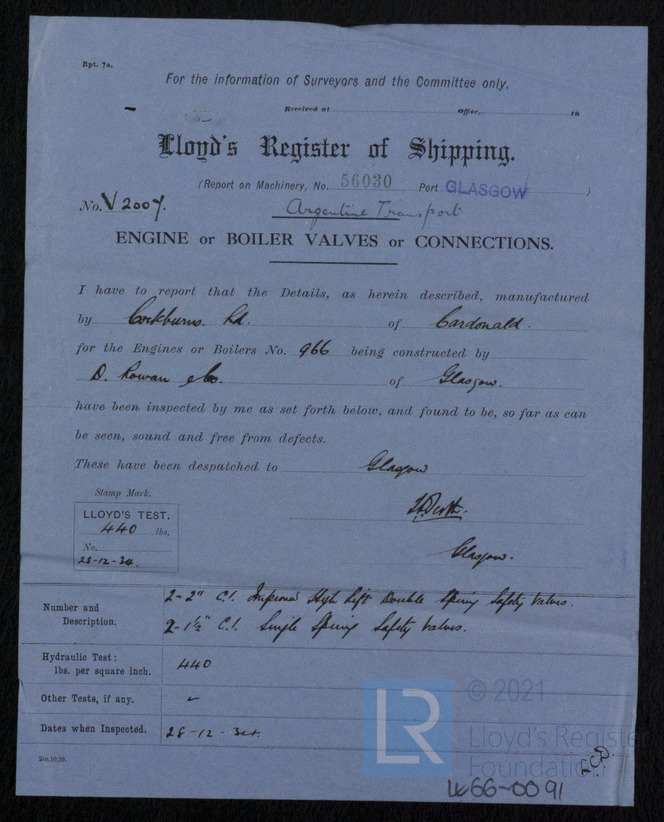 Rpt. 7a.
For the information of Surveyors and the Committee only.
Received at Office, 18
Lloyd's Register of Shipping.
(Report on Machinery, No. 56030 Port GLASGOW )
No. V2007. Argentine Transport
ENGINE or BOILER VALVES or CONNECTIONS.
I have to report that the Details, as herein described, manufactured
by Cockburns. Ld. of Cardonald.
for the Engines or Boilers No. 966 being constructed by
D. Rowan & Co. of Glasgow.
have been inspected by me as set forth below, and found to be, so far as can
be seen, sound and free from defects.
These have been despatched to Glasgow
Stamp Mark.
LLOYD'S TEST.
440 lbs.
No.
28-12-34.
Glasgow.
Number and Description.
2-2" C.I. Improved High Lift Double Spring Safety Valves.
2-1½" C.I. Single Spring Safety Valves.
Hydraulic Test:
lbs. per square inch. 440
Other Tests, if any.
Dates when Inspected. 28-12-34.
2m,10,29.
LR
© 2021
Lloyd's Register
Foundation
W66-0091